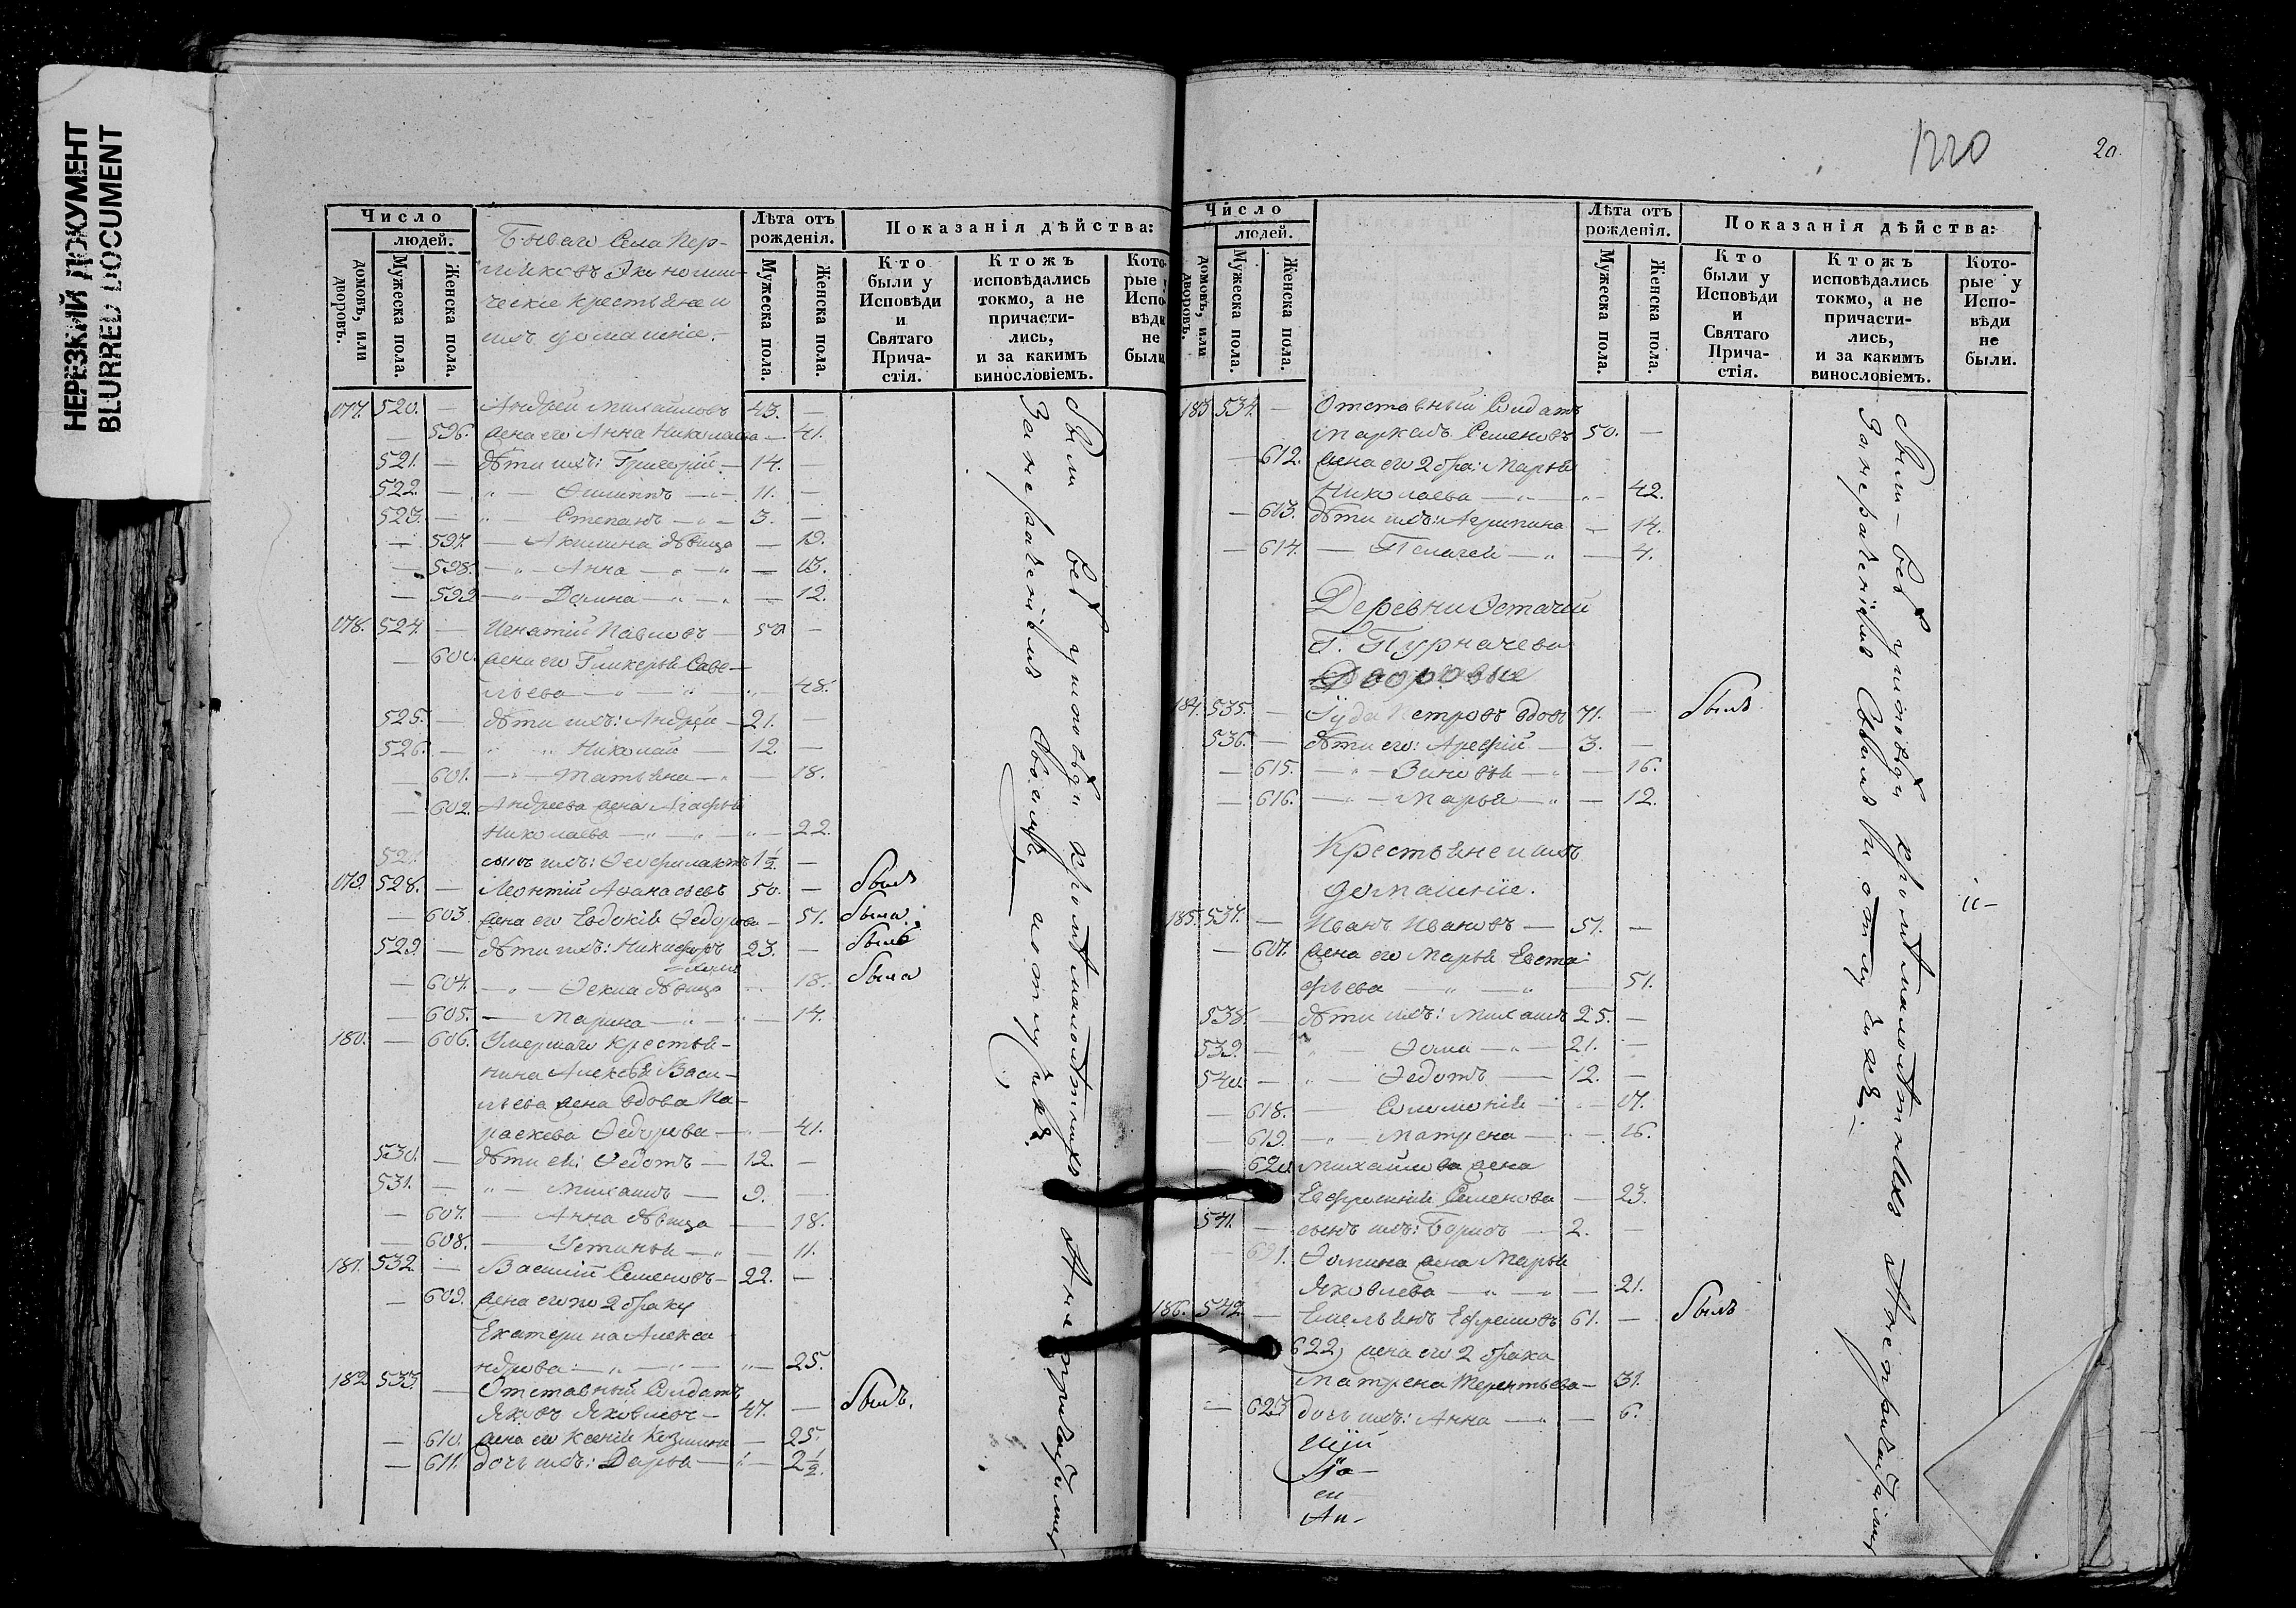 НЕРЕЗКИЙ ДОКУМЕНТ
BLURRED DOCUMENT
1220
20.
Число
людей.
домовъ, или дворовъ.
Мужеска пола.
Женска пола.
Бываго Села Пер-
Экономи-
ческие крестьяне и
ихъ домашніе.
Лѣта отъ рожденія.
Мужеска пола.
Женска пола.
Показанія дѣйства:
Кто были у Исповѣди и Святаго Прича-стія.
Ктожъ исповѣдались токмо, а не причасти-лись, и за какимъ винословіемъ.
Кото-рые у Испо-вѣди не были
177. 520. — Андрей Михайловъ 43. —
— 596. жена его Анна Николаева — 41.
521. — дѣти ихъ: Григорій — 14. —
522. — " — Филиппъ — 11. —
523. — " — Степанъ — " — 3. —
— 597. — Акилина дѣвица — 19.
— 598. — " — Анна — " — 13.
— 599 — " — Домна — " — 12.
178. 524. — Игнатій Павловъ — 50 —
— 600. жена его Гликерья Саве-
льева — " — 48.
525. — дѣти ихъ: Андрей — 21. —
526. — " " Николай — 12. —
— 601. — " — Татьяна — " — 18.
— 602. Андреева жена Агафья
Николаева — " — " — 22.
527. сынъ ихъ: Феофилактъ 1½ —
179. 528. — Леонтій Афанасьевъ 50. — былъ
— 603. жена его Евдокія Федорова — 51. была.
529. — дѣти ихъ: Никифоръ 23. — былъ
— 604. — " — Фекла дѣвица — 18. была
— 605. — Марина — " — 14.
180. — 606. Умершаго крестья-
нина Алексѣя Васи-
льева жена вдова Па-
раскева Федорова — 41.
530. — дѣти ея: Федотъ — 12. —
531. — " — Михаилъ — 9. —
— 607. — Анна дѣвица — 18.
— 608. — Устинья — " — 11.
181. 532. — Василій Семеновъ — 22. —
— 609. жена его по 2 браку
Екатерина Алекса
ндрова — " — 25.
182 533. — Отставный Солдатъ
Яковъ Яковлевъ — 47. — былъ.
— 610. жена его Ксенія Козмина — 25.
— 611. дочь ихъ: Дарья — " — 2½.
Были всѣ у исповѣди кромѣ малолѣтнихъ
Число
людей.
домовъ, или дворовъ.
Мужеска пола.
Женска пола.
Лѣта отъ рожденія.
Мужеска пола.
Женска пола.
Показанія дѣйства:
Кто были у Исповѣди и Святаго Прича-стія.
Ктожъ исповѣдались токмо, а не причасти-лись, и за какимъ винословіемъ.
Кото-рые у Испо-вѣди не были.
183 534. — Отставный Солдатъ
Маркелъ Семеновъ 50. —
— 612. жена его 2 бра: Марья
Николаева — " — 42.
— 613. дѣти ихъ: Агрипина — 14.
— 614. — Пелагея — " — 4.
Деревни
Дворовые
184. 535. — Іуда Петровъ вдовъ 71. — былъ
536. — дѣти его: Арефій — 3. —
— 615. — " — Зиновья — " — 16.
— 616. — " — Марья — " — 12.
Крестьяне и ихъ
домашніе.
185. 537. — Иванъ Ивановъ — 51. —
— 607. жена его Марья Евста-
фьева — " — " — 51.
538. — дѣти ихъ: Михаилъ 25. —
539. — " — Фома — " — 21. —
540. — " — Федотъ — 12. —
— 618. — Соломонія — 17.
— 619. — " — Матрена — 16.
620. Михайлова жена
Евфросинія Семенова — 23.
541. — сынъ ихъ: Борисъ — 2. —
Фомина жена Марья
Яковлева — " — " — 21.
186. 542. — Емельянъ Ефремовъ 61. — былъ
622, жена его 2 брака
Матрена Терентьева — 31.
— 623 дочь ихъ: Анна — " — 6.
Были всѣ у исповѣди кромѣ малолѣтнихъ